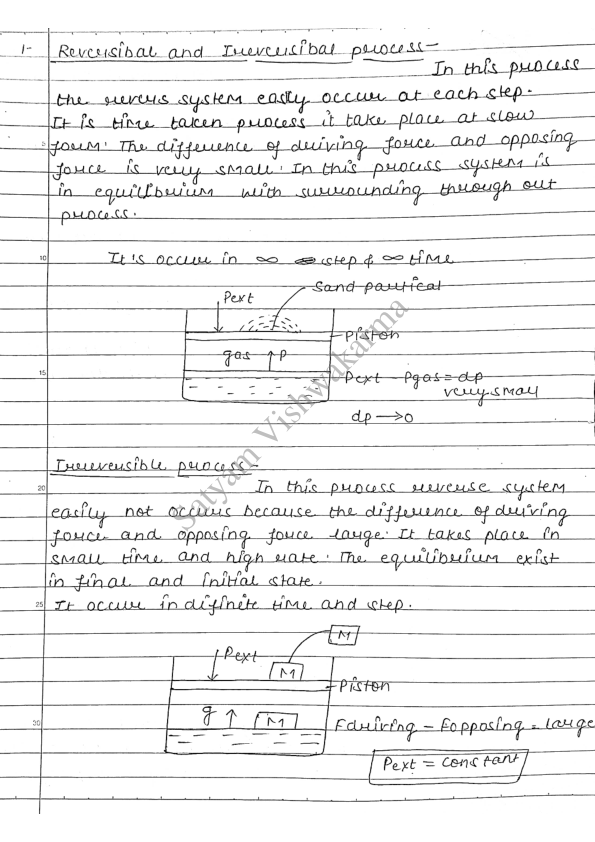 1- Reversibal and Irreversibal process-
In this process
the revers system easily occur at each step.
It is time taken process it take place at slow
form. The difference of driving force and opposing
force is very small. In this process system is
in equilibrium with surrounding through out
process.
It's occur in ∞ step & ∞ time
Sand partical
Pext
Piston
gas ↑P
Pext - Pgas = dp
very small
dp → 0
Irreversible process-
In this process reverse system
easily not occurs because the difference of driving
force and opposing force large. It takes place in
small time and high rate. The equilibrium exist
in final and initial state.
It occur in difinite time and step.
M
Pext
M
Piston
g ↑ M
Fdriving - Fopposing = large
Pext = constant
Satyam Vishwakarma
5
10
15
20
25
30